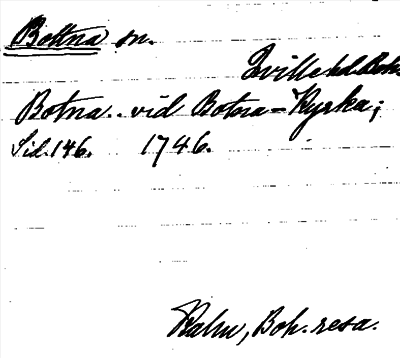 Bottna sn.
Kville hd. Boh.
Botna.. vid Botna-Kyrka;
Sid. 146. 1746.
Kalm, Boh. resa.